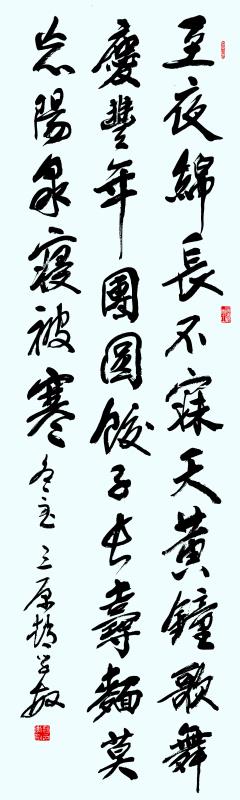 至夜綿長不寐天黃鐘歌舞
慶豐年團圓餃子长壽麵莫
忘陽泉寢被寒
冬至三原